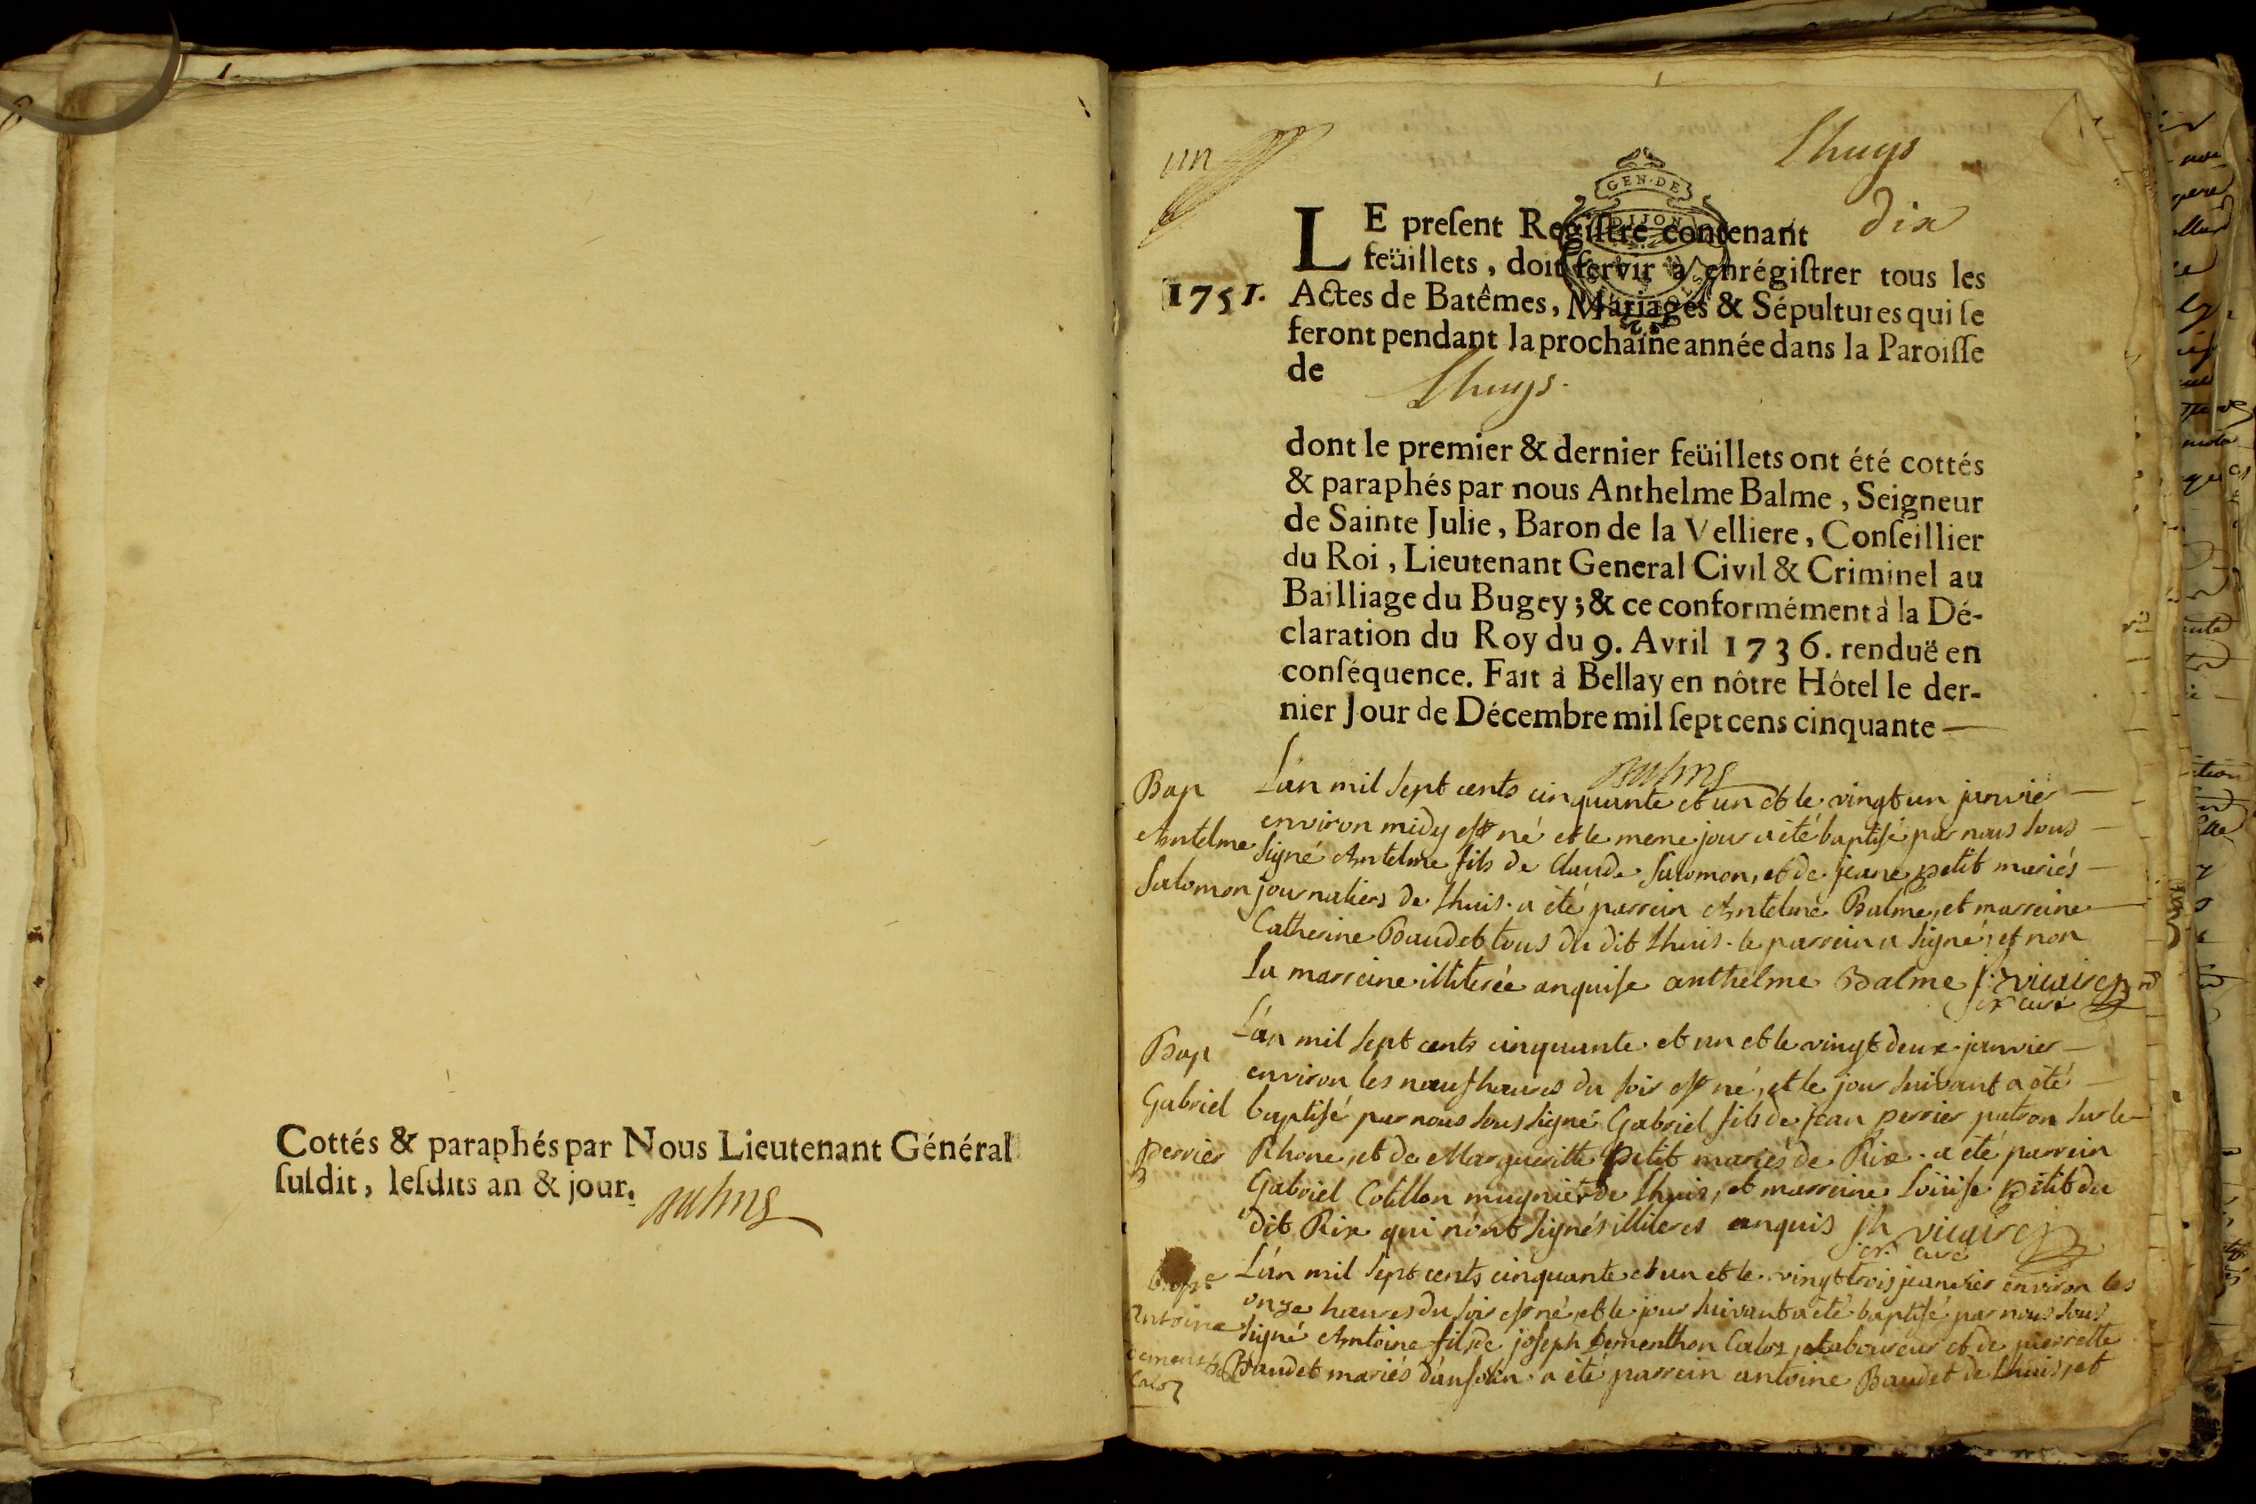 Cottés & paraphés par Nous Lieutenant Général
ſuſdit, leſdits an & jour.
Balme
un
Lhuys
GEN·DE
DIJON
LE preſent Regiſtre contenant dix
feüillets, doit ſervir à enrégiſtrer tous les
1751.
Actes de Batêmes, Mariages & Sépultures qui ſe
feront pendant la prochaine année dans la Paroiſſe
de Lhuys.
dont le premier & dernier feüillets ont été cottés
& paraphés par nous Anthelme Balme, Seigneur
de Sainte Julie, Baron de la Velliere, Conſeillier
du Roi, Lieutenant General Civil & Criminel au
Bailliage du Bugey; & ce conformément à la Dé-
claration du Roy du 9. Avril 1736. renduë en
conſéquence. Fait à Bellay en nôtre Hôtel le der-
nier Jour de Décembre mil ſept cens cinquante —
Balme
Bap
Antelme
Salomon
L'an mil sept cents cinquante et un et le vingt un janvier
environ midy est né et le meme jour a été baptisé par nous sous
signé Antelme fils de Claude Salomon, et de jeane petit mariés
journaliers de Lhuis. a été parrein Antelme Balme, et marreine
Catherine Baudet tous du dit Lhuis. le parrein a signé, et non
la marreine illiterée anquise anthelme Balme j: vicaire
curé
Bap
Gabriel
perrier
L'an mil sept cents cinquante et un et le vingt deux janvier
environ les neuf heures du soir est né, et le jour suivant a été
baptisé par nous sous signé Gabriel fils de jean perrier patron sur le
Rhone, et de Margueritte petit mariés de Rix. a été parrein
Gabriel Cotillon mugnier de Lhuis, et marreine Loüise petit du
dit Rix qui n'ont signés illiteres anquis jh vicaire
curé
bap.
Antoine
dementhon
Caloz
L'an mil sept cents cinquante et un et le vingt trois jeanvier environ les
onze heures du soir est né, et le jour suivant a été baptisé par nous sous
signé Antoine fils de joseph Dementhon Caloz, laboureur et de pierrette
Baudet mariés d'ansolin. a été parrein antoine Baudet de Lhuis, et